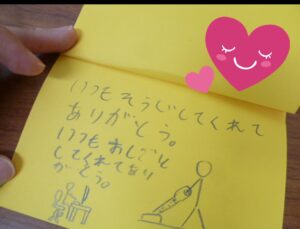 いつもそうじしてくれて
ありがとう。
いつもおしごと
してくれてあり
がとう。